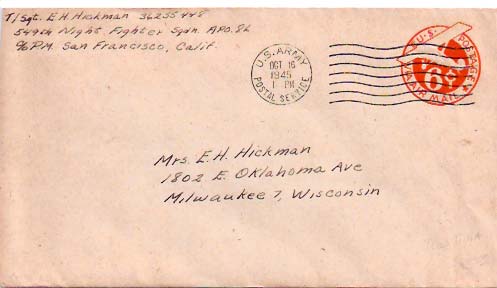 T/Sgt. E.H. Hickman 36255448
549th Night Fighter Sqdn. APO. 86
% P.M. San Francisco, Calif.
U.S. ARMY
OCT 16
1945
1 PM
POSTAL SERVICE
U.S. POSTAGE
6¢
VIA AIR MAIL
Mrs. E.H. Hickman
1802 E. Oklahoma Ave
Milwaukee 7, Wisconsin